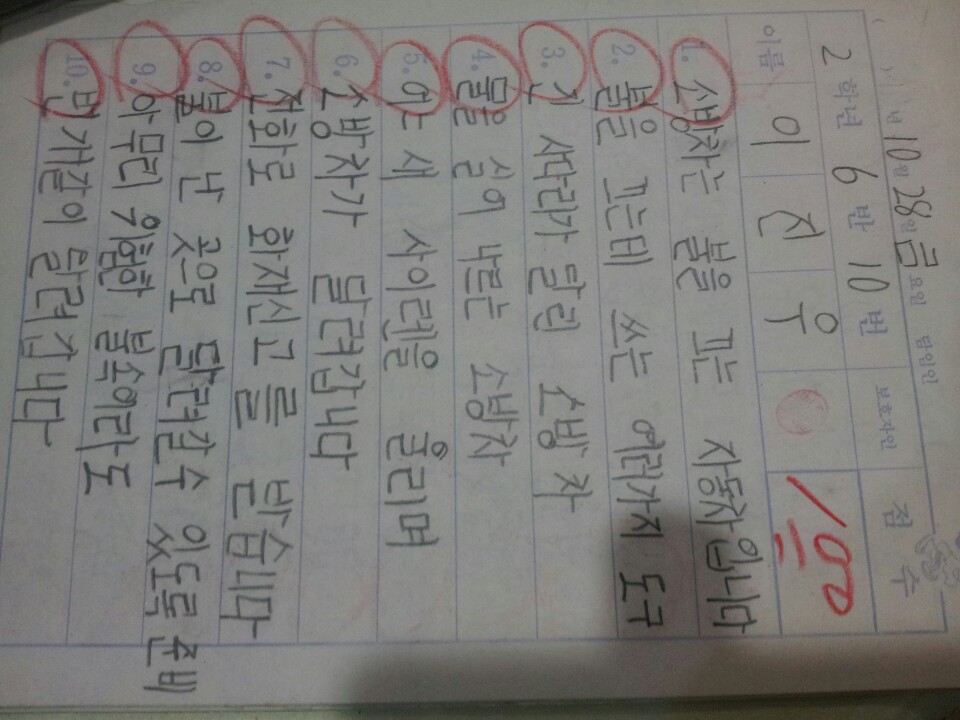 년 10월 28일 금요일 담임인
2학년 6반 10번 보호자인 점수
이름 이진우 100
1. 소방차는 불을 끄는 자동차입니다
2. 불을 끄는데 쓰는 여러가지 도구
3. 긴 사다리가 달린 소방차
4. 물을 실어 나르는 소방차
5. 어느새 사이렌을 울리며
6. 소방차가 달려갑니다
7. 전화로 화재신고를 받습니다
8. 불이 난 곳으로 달려갈수 있도록 준비
9. 아무리 위험한 불속이라도
10. 번개같이 달려갑니다